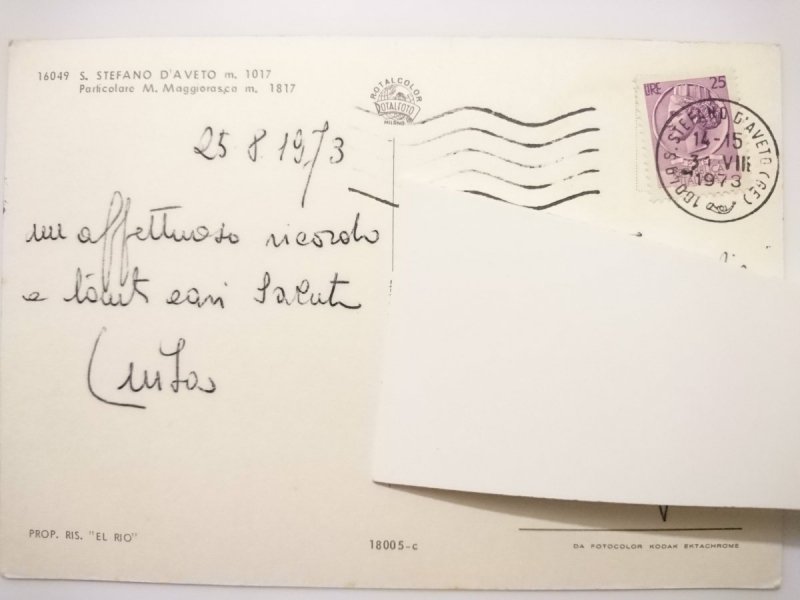 16049 S. STEFANO D'AVETO m. 1017
Particolare M. Maggiorasca m. 1817
ROTALCOLOR
ROTALFOTO
MILANO
LIRE 25
16049 S. STEFANO D'AVETO (GE)
14-15
31 VIII
1973
25 8 1973
un affettuoso ricordo
e tanti cari saluti
PROP. RIS. "EL RIO"
18005-c
DA FOTOCOLOR KODAK EKTACHROME